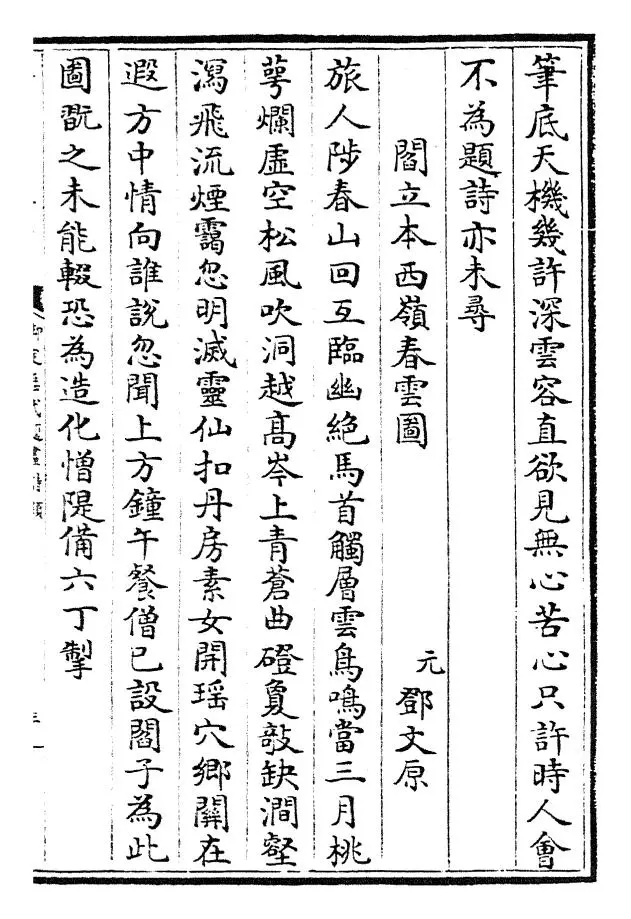 筆底天機幾許深雲容直欲見無心苦心只許時人會
不為題詩亦未尋
閻立本西嶺春雲圖
元 鄧文原
旅人陟春山回互臨幽絶馬首觸層雲鳥鳴當三月桃
萼爛虛空松風吹洞越高岑上青蒼曲磴夐敧缺澗壑
瀉飛流煙靄忽明滅靈仙扣丹房素女開瑶穴鄉關在
遐方中情向誰說忽聞上方鐘午餐僧已設閻子為此
圖翫之未能輟恐為造化憎隄備六丁掣